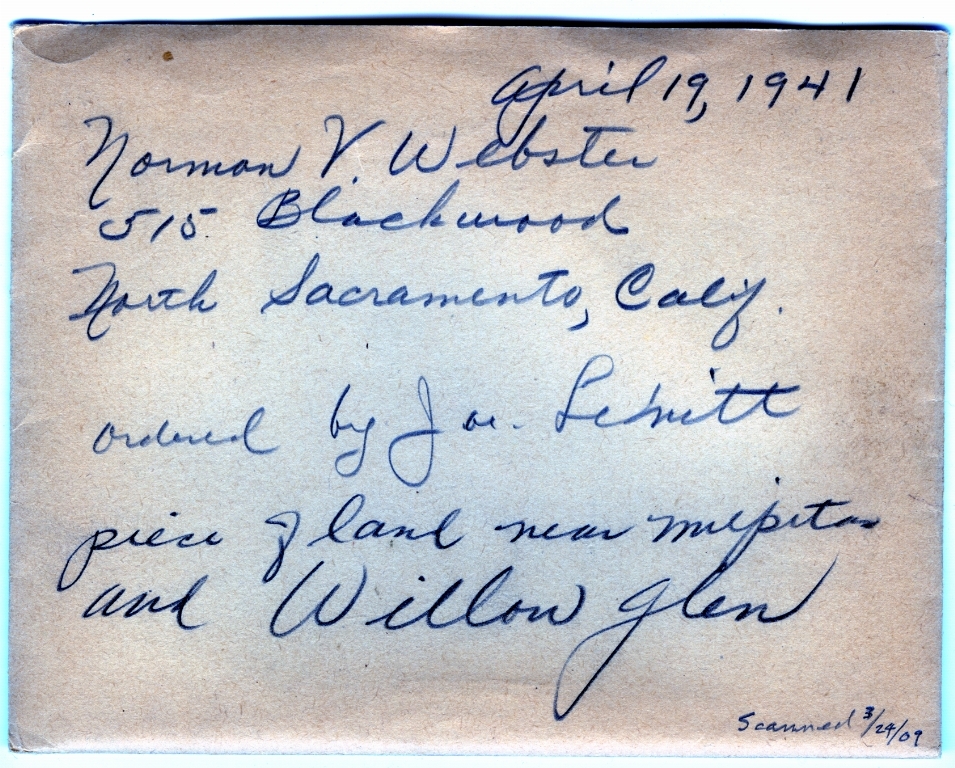 April 19, 1941
Norman V. Webster
515 Blackwood
North Sacramento, Calif.
ordered by Joe.
piece of land near milpitas
and Willow Glen
Scanned 3/24/09